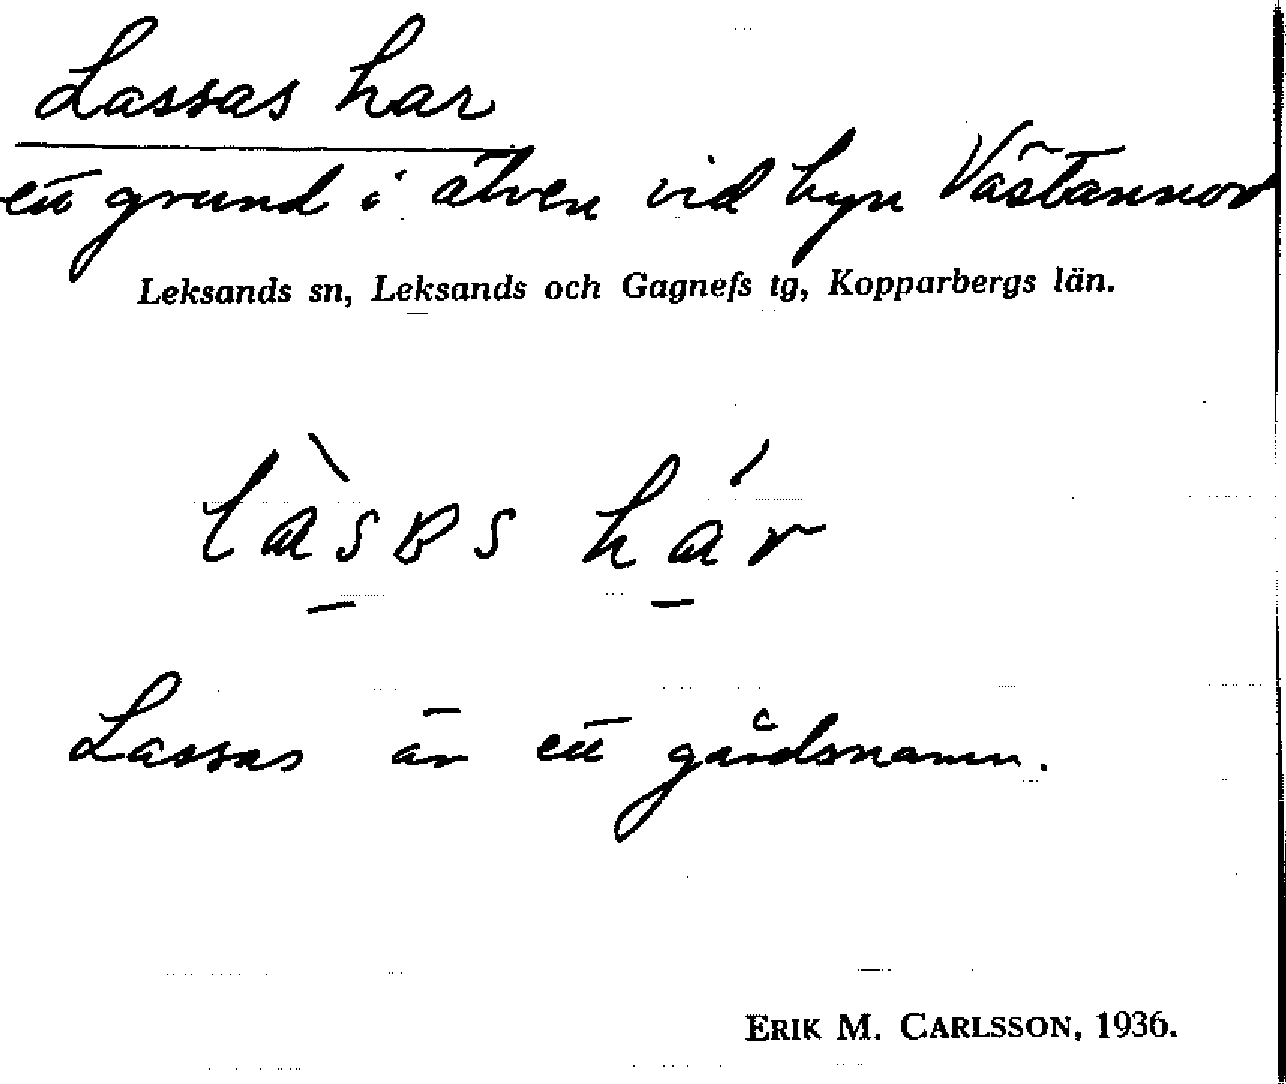 Lassas har
ett grund i älven vid byn Västannor
Leksands sn, Leksands och Gagnefs tg, Kopparbergs län.
làsɐs hár
Lassas är ett gårdsnamn.
ERIK M. CARLSSON, 1936.